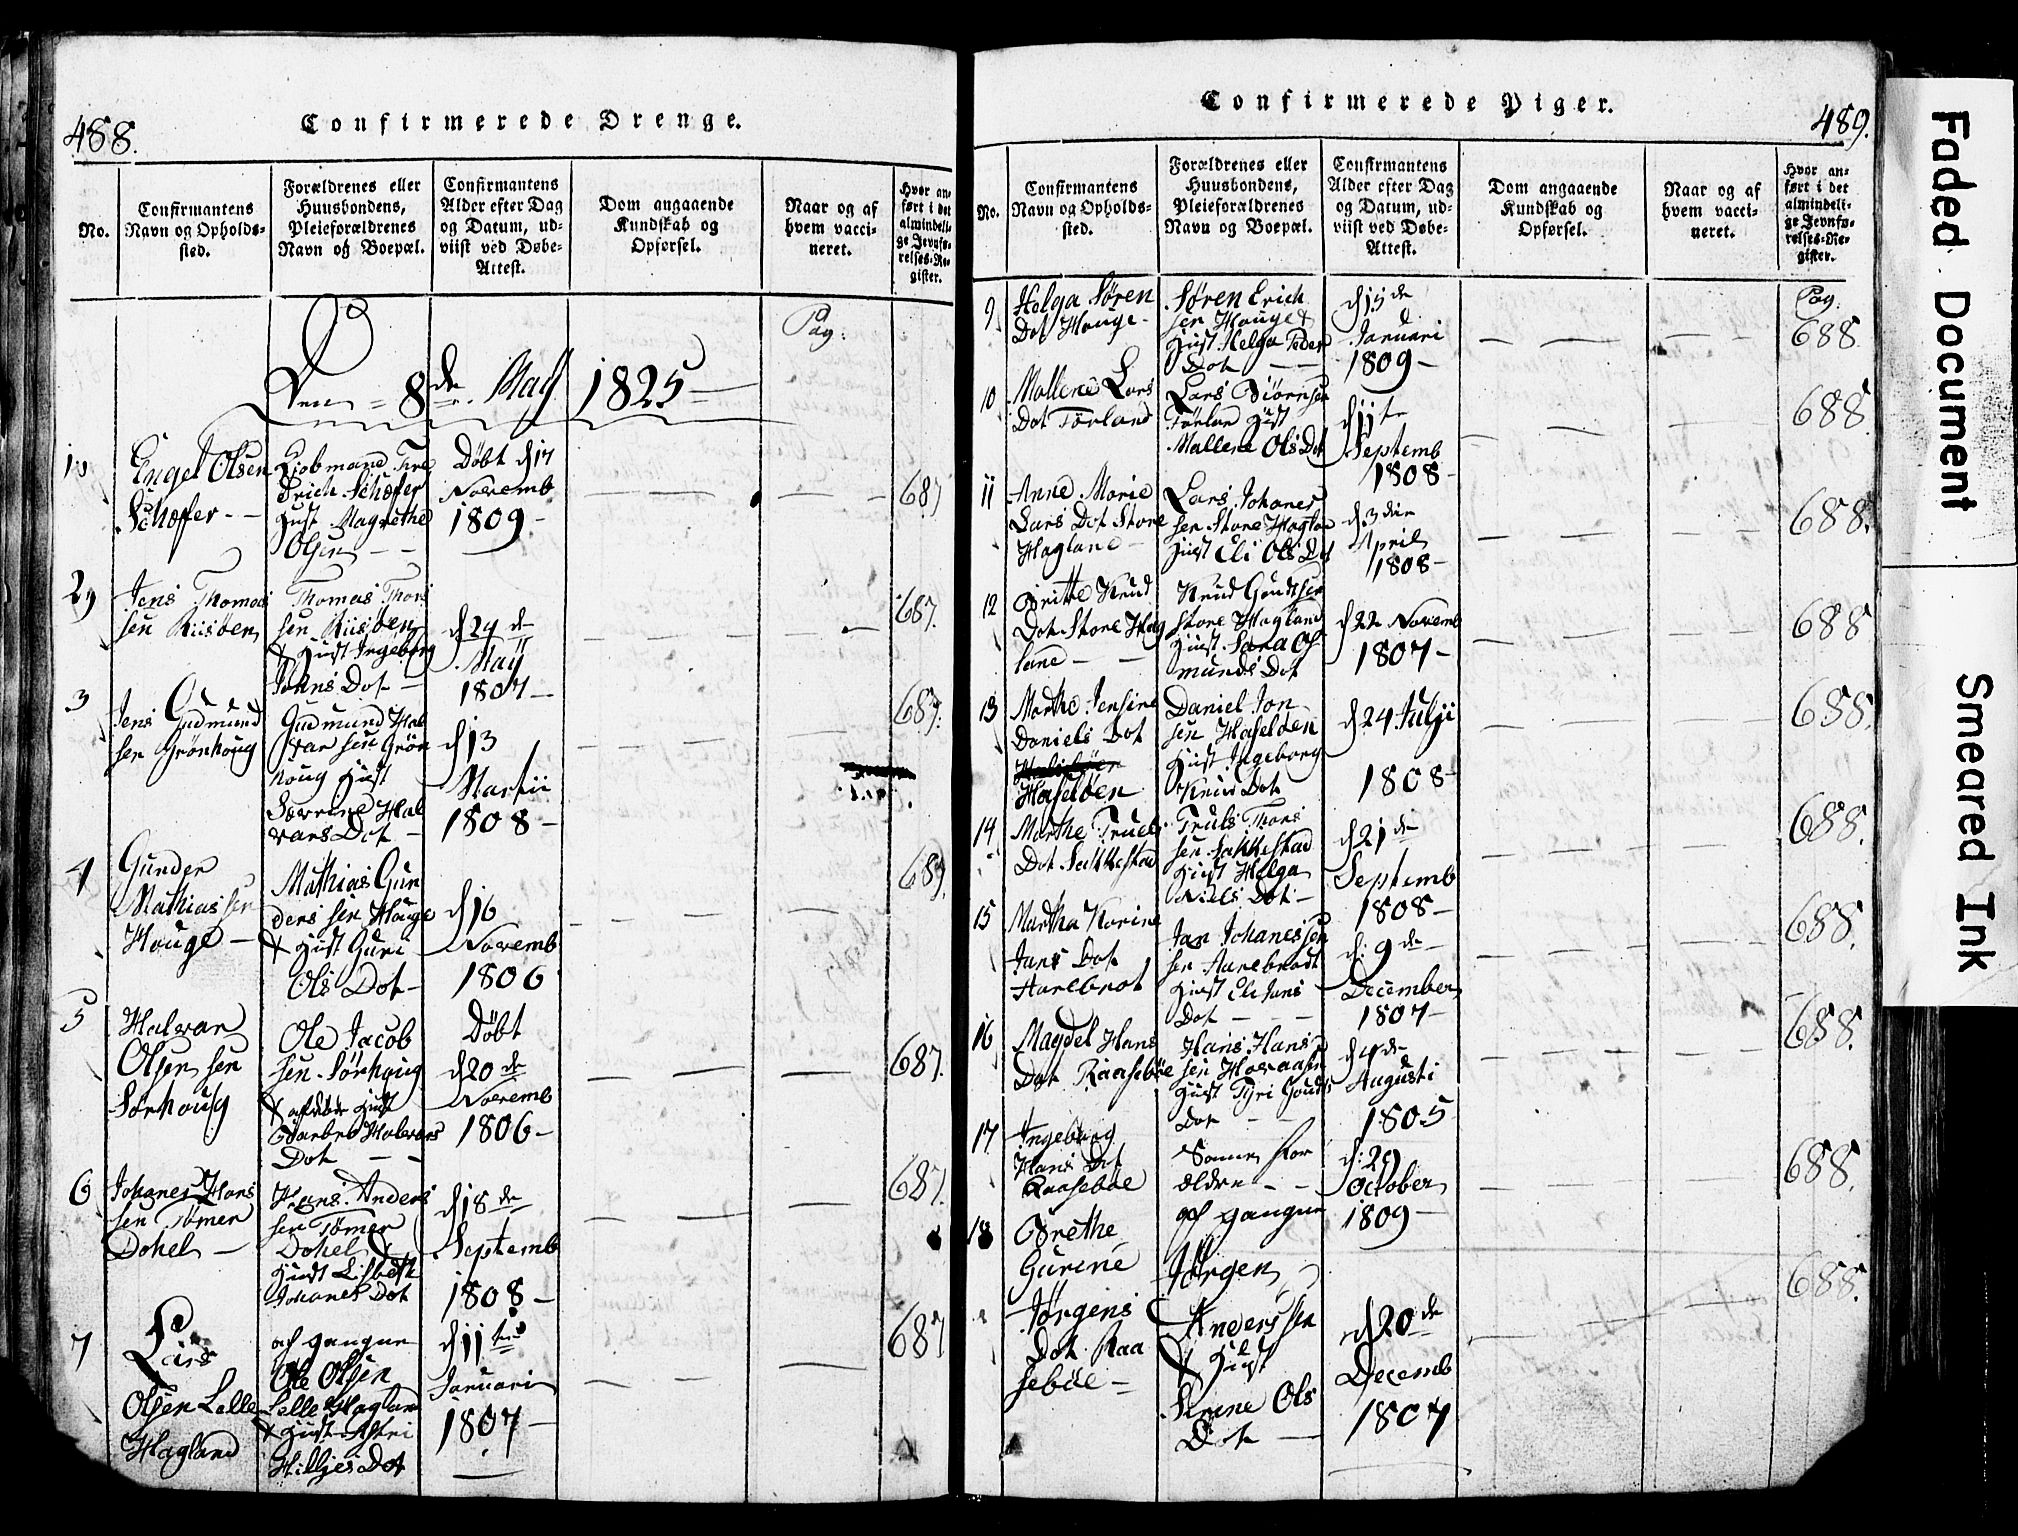 488.
Confirmerede Drenge.
No.
Confirmantens
Navn og Opholds-
sted.
Forældrenes eller
Huusbondens,
Pleieforældrenes
Navn og Boepæl.
Confirmantens
Alder efter Dag
og Datum, ud-
viist ved Døbe-
Attest.
Dom angaaende
Kundskab og
Opførsel.
Naar og af
hvem vacci-
neret.
Hvor an-
ført i det
almindeli-
ge Jevnfø-
relses-Re-
gister.
Pag:
Den 8de May 1825
Engel Olsen
Schøffer
Erich Schøffer
Hust Magrethe
Olsen
Døbt d 17
Novemb
1809
687
2
Jens Thomas
sen Riisøen
Thomas Thors
sen Riisøen
& Hust Ingeborg
Johns Dot
d 24 de
Maÿ
1807
687.
3
Jens Gudmund
sen Grönhoug
Gudmund Hal
var sen Grön
houg Hust
Hal
vars Dot
d 13
Martii
1808
687.
4
Gunder
Mathias sen
Houge
Mathias Gun
ders sen Houge
& Hust Guri
Ols Dot
d 16
Novemb
1806
5
Halvar
Olsen sen
Sørhoug
Ole Jacob
sen Sørhoug
& Hust
Halvors
Dot
Døbt
d 20 de
Novemb
1806
687.
6
Johanes Hans
sen Tømer
Dohel
Hans Anders
sen Tømer
Dohel &
Hust Lisbeth
Johanes Dot
d 18 de
Septemb
1808
687.
7
Lars
Olsen Lelle
Hagland
Ole Olsen
Lelle Hagland
& Hust Astri
Hilljes Dot
d 11 te
Januari
1807
687
Confirmerede Piger.
489.
No.
Confirmantens
Navn og Opholds-
sted.
Forældrenes eller
Huusbondens,
Pleieforældrenes
Navn og Boepæl.
Confirmantens
Alder efter Dag
og Datum, ud-
viist ved Døbe-
Attest.
Dom angaaende
Kundskab og
Opførsel.
Naar og af
hvem vacci-
neret.
Hvor an-
ført i det
almindeli-
ge Jevnfø-
relses-Re-
gister.
Pag.
9
Helga Søren
Dot Houge
Søren Erich
sen Houge &
Hust Helga Peder
Dot
d 15 de
Januari
1809
688
10
Mallene Lars
Dot Førland
Lars Biørnsen
Førlan Hust
Mallene Ols Dot
d 11 te
Septemb
1808
688
11
Anne Marie
Lars Dot Store
Haglane
Lars Johanes
sen Store Haglan
Hust Eli Ols Dot
d 3 die
April
1808
688.
12
Britte Knud
Dot Store Hag
lane
Knud Goudtsen
Store Hagland
Hust
munds Dot
d 22 Novemb
1807
688
13
Marthe Jensine
Daniels Dot
Haseløen
Daniel Jon
sen Haseløen
Hust Ingeborg
Knud Dot
d 24 Julii
1808
688.
14
Marthe Truels
Dot Sakkestad
Truls Thors
sen Sakkestad
Hust Helga
Niels Dot
d 21 de
Septemb
1808
688.
15
Martha Karine
Jans Dot
Aarebrot
Jan Johanessen
sen Aarebrodt
Hust Eli Jans
Dot
d: 9 de
December
1807
688.
16
Magdel Hans
Dot Raasebøe
Hans Hans
sen
Hust Tyri Gouds
Dot
d 4 de
Augusti
1805
688.
17
Ingeborg
Hans Dot
Raasebøe
Samme For
ældre
d: 29
October
1809
688.
18
Grethe
Gurine
Jørgens
Dot Raa
sebøe
Jørgen
Anders sen
& Hust
Serene Ols
Dot
d 20 de
Decemb
1807
688.
Faded Document
Smeared Ink